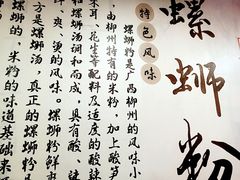 螺蛳粉
特色风味
螺蛳粉是广西柳州的风味小
由柳州特有的米粉，加上酸笋
木耳、花生等配料及适度的酸辣
螺蛳汤调和而成，具有酸、辣
鲜、爽、烫的风味。
方是螺蛳汤，真正的螺蛳粉
的，米粉的味道基础来